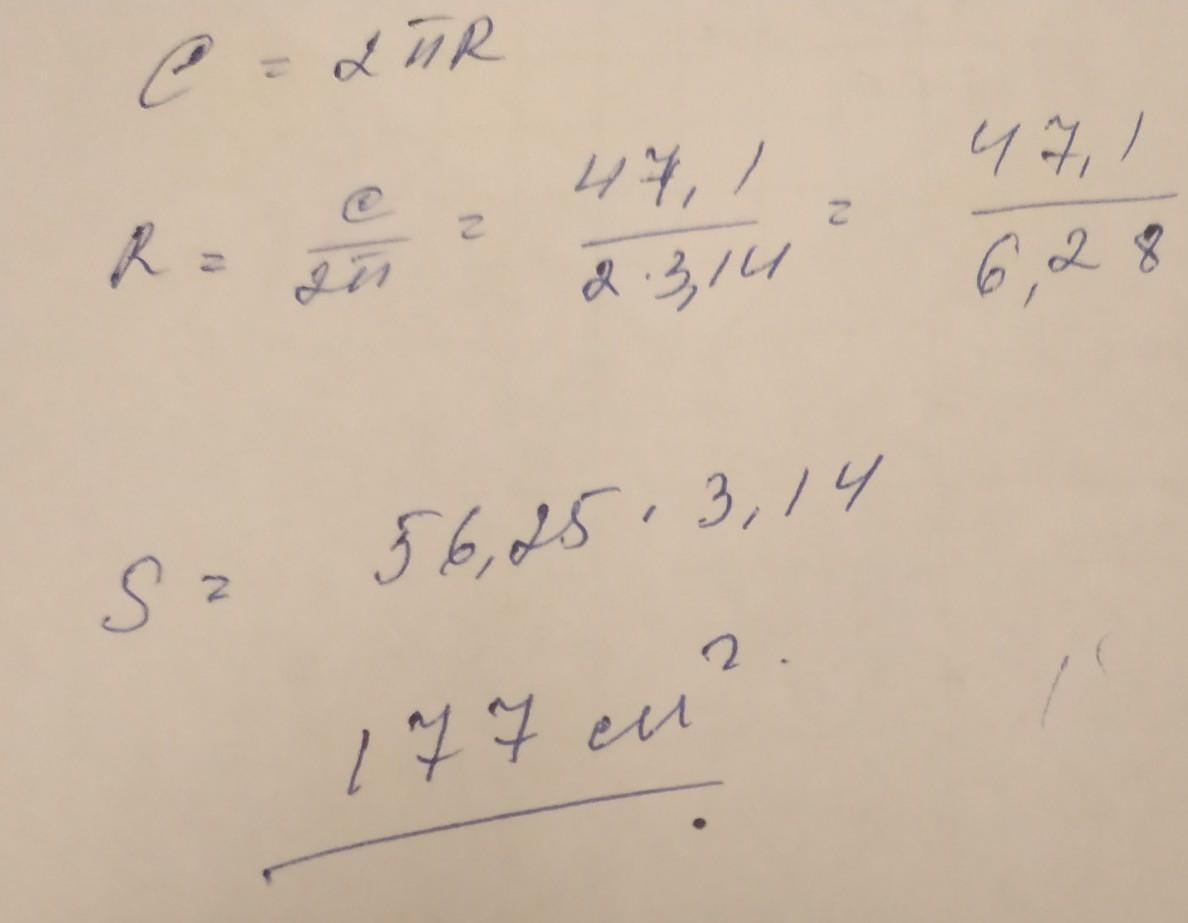 C = 2πR
R = C/2π = 47,1/2·3,14 = 47,1/6,28
S = 56,25 · 3,14
177 см².